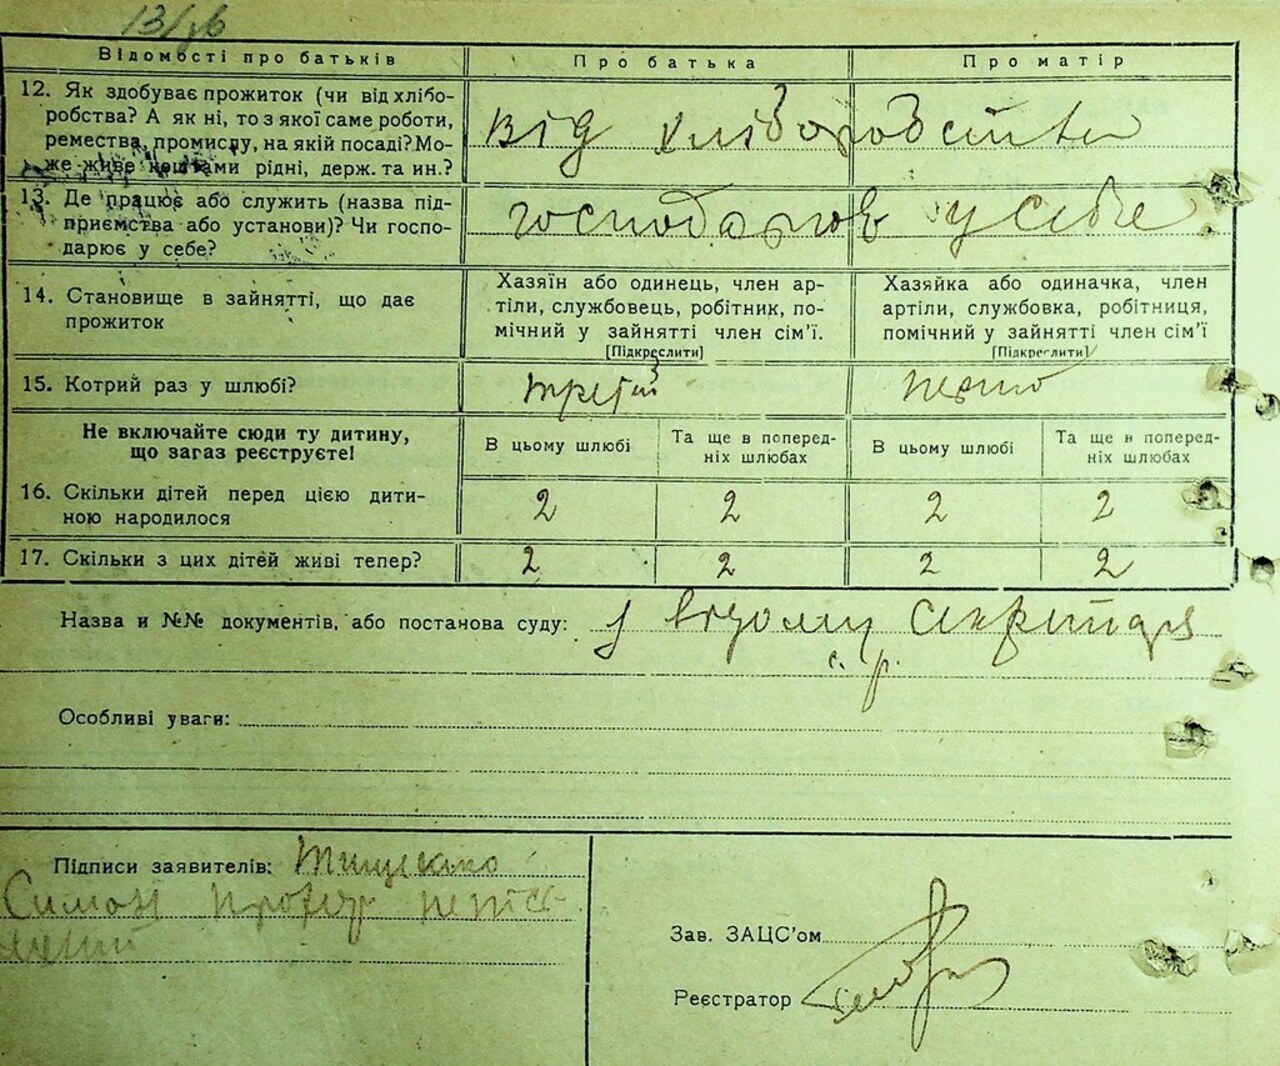 Відомості про батьків
Про батька
Про матір
12. Як здобуває прожиток (чи від хлібо-
робства? А як ні, то з якої саме роботи,
ремества, промислу, на якій посаді? Мо-
же живе коштами рідні, держ. та ин.?
від хліборобства
13. Де працює або служить (назва під-
приємства або установи)? Чи госпо-
дарює у себе?
у себе
14. Становище в зайнятті, що дає
прожиток
Хазяїн або одинець, член ар-
тіли, службовець, робітник, по-
мічний у зайнятті член сім'ї.
[Підкреслити]
Хазяйка або одиначка, член
артіли, службовка, робітниця,
помічний у зайнятті член сім'ї
[Підкреслити]
15. Котрий раз у шлюбі?
третій
Не включайте сюди ту дитину,
що загаз реєструєте!
В цьому шлюбі
Та ще в поперед-
ніх шлюбах
В цьому шлюбі
Та ще в поперед-
ніх шлюбах
16. Скільки дітей перед цією дити-
ною народилося
2 2 2 2
17. Скільки з цих дітей живі тепер?
2 2 2 2
Назва и №№ документів, або постанова суду: у відому Секритаря
с. р.
Особливі уваги:
Підписи заявителів: Тищенко
Зав. ЗАЦС'ом
Реєстратор